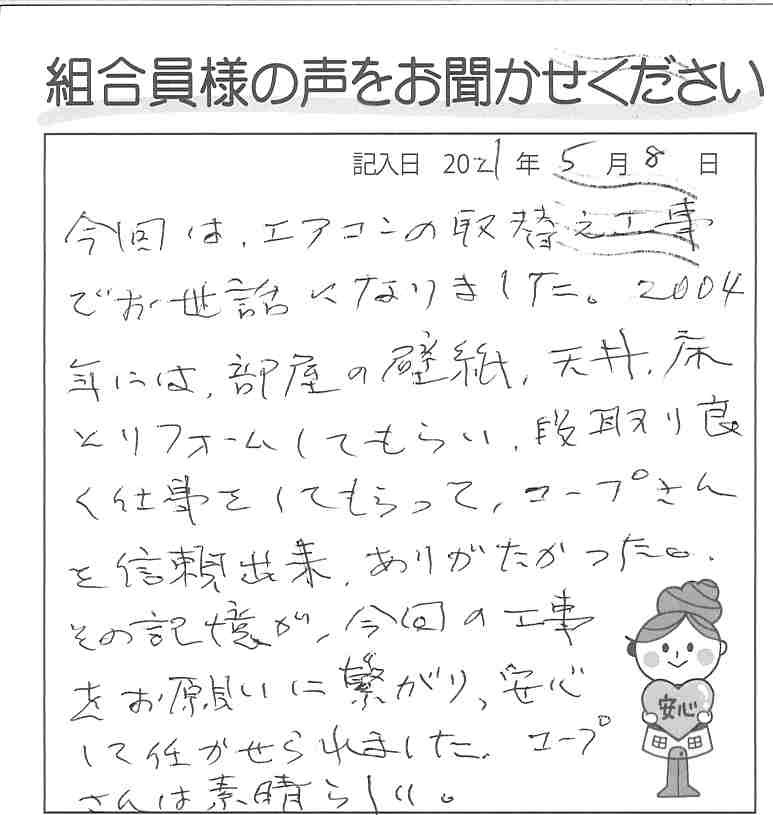 組合員様の声をお聞かせください
記入日 2021年5月8日
今回は、エアコンの取替え工事
でお世話くなりました。2004
年には、部屋の壁紙、天井、床
とリフォームしてもらい、段取り良
く仕事をしてもらって、コープさん
を信頼出来、ありがたかった。
その記憶が、今回の工事
をお願いに繋がり、安心
して任かせられました、コープ
さんは素晴らしい。
安心